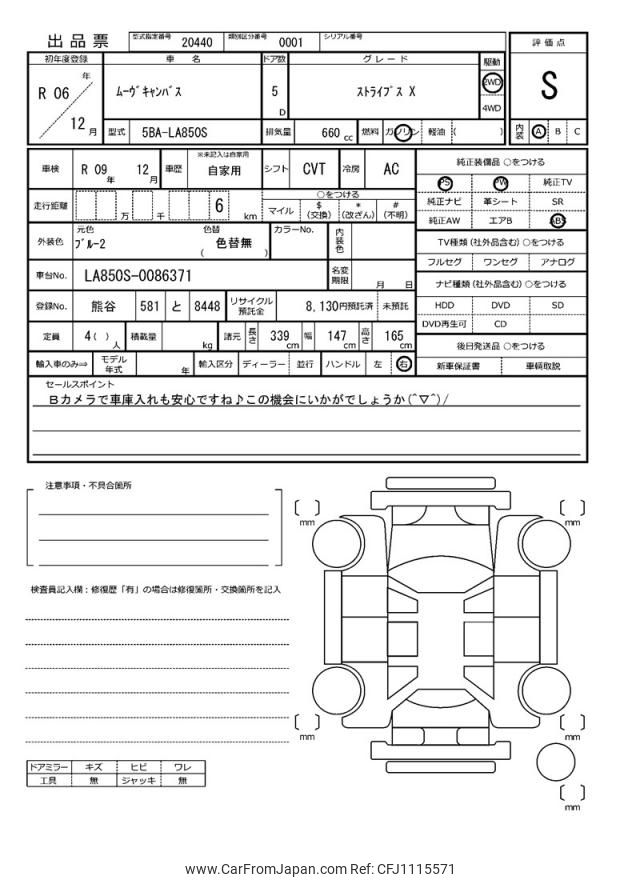 出品票
型式指定番号 20440 類別区分番号 0001 シリアル番号
評価点
S
初年度登録 車名 ドア数 グレード 駆動
R 06 年 12 月
ムーヴキャンバス 5 D ストライプス X 2WD 4WD
型式 5BA-LA850S 排気量 660 cc 燃料 ガソリン 軽油 ( )
内装 A B C
車検 R 09 年 12 月 車歴 ※未記入は自家用 自家用 シフト CVT 冷房 AC
純正装備品 ○をつける
PS PW 純正TV
純正ナビ 革シート SR
純正AW エアB ABS
走行距離 万 千 6 km
○をつける
マイル $(交換) *(改ざん) #(不明)
外装色 元色 ブルー2 色替 色替無 ( ) カラーNo. 内装色
TV種類(社外品含む)○をつける
フルセグ ワンセグ アナログ
車台No. LA850S-0086371 名変期限 月 日
ナビ種類(社外品含む)○をつける
HDD DVD SD
DVD再生可 CD
登録No. 熊谷 581 と 8448 リサイクル預託金 8,130円預託済 未預託
定員 4( )人 積載量 kg 諸元 長さ 339 cm 幅 147 cm 高さ 165 cm
後日発送品 ○をつける
新車保証書 車輌取説
輸入車のみ⇒ モデル年式 年 輸入区分 ディーラー 並行 ハンドル 左 右
セールスポイント
Bカメラで車庫入れも安心ですね♪この機会にいかがでしょうか(^▽^)/
注意事項・不具合箇所
検査員記入欄:修復歴「有」の場合は修復箇所・交換箇所を記入
[ ] mm
[ ] mm
[ ] mm
[ ] mm
[ ] mm
ドアミラー キズ ヒビ ワレ
工具 無 ジャッキ 無
www.CarFromJapan.com Ref: CFJ1115571